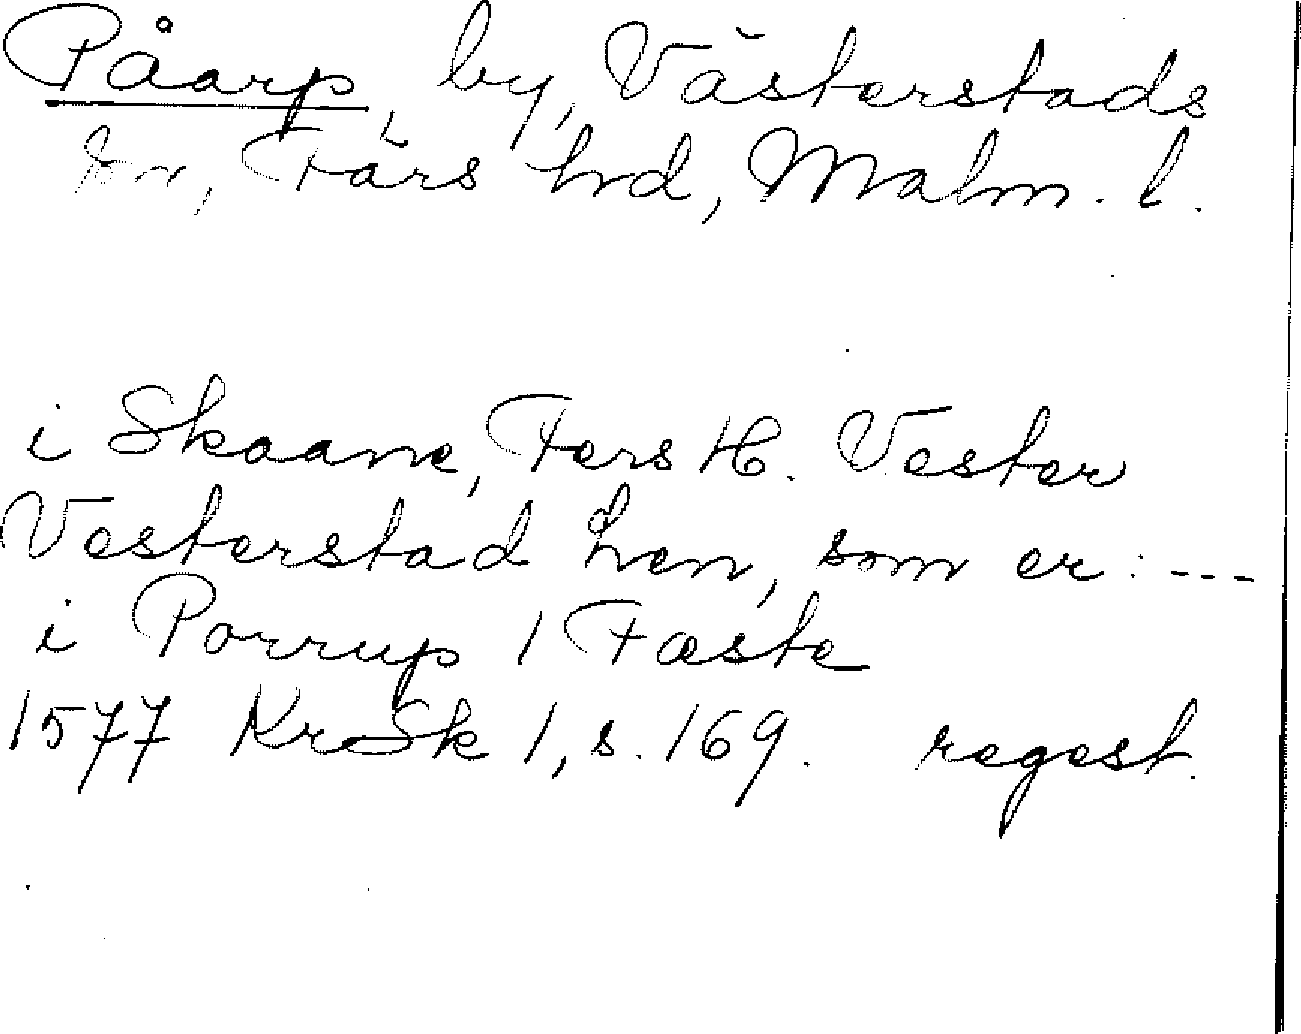 Påarp, by, Västerstads
sn, Färs hrd, Malm. l.
i Skaane, Fers H. Vester
Vesterstad Len, som er: ---
i Porrup 1 Fæste
1577 KrSk 1, s. 169. regest.